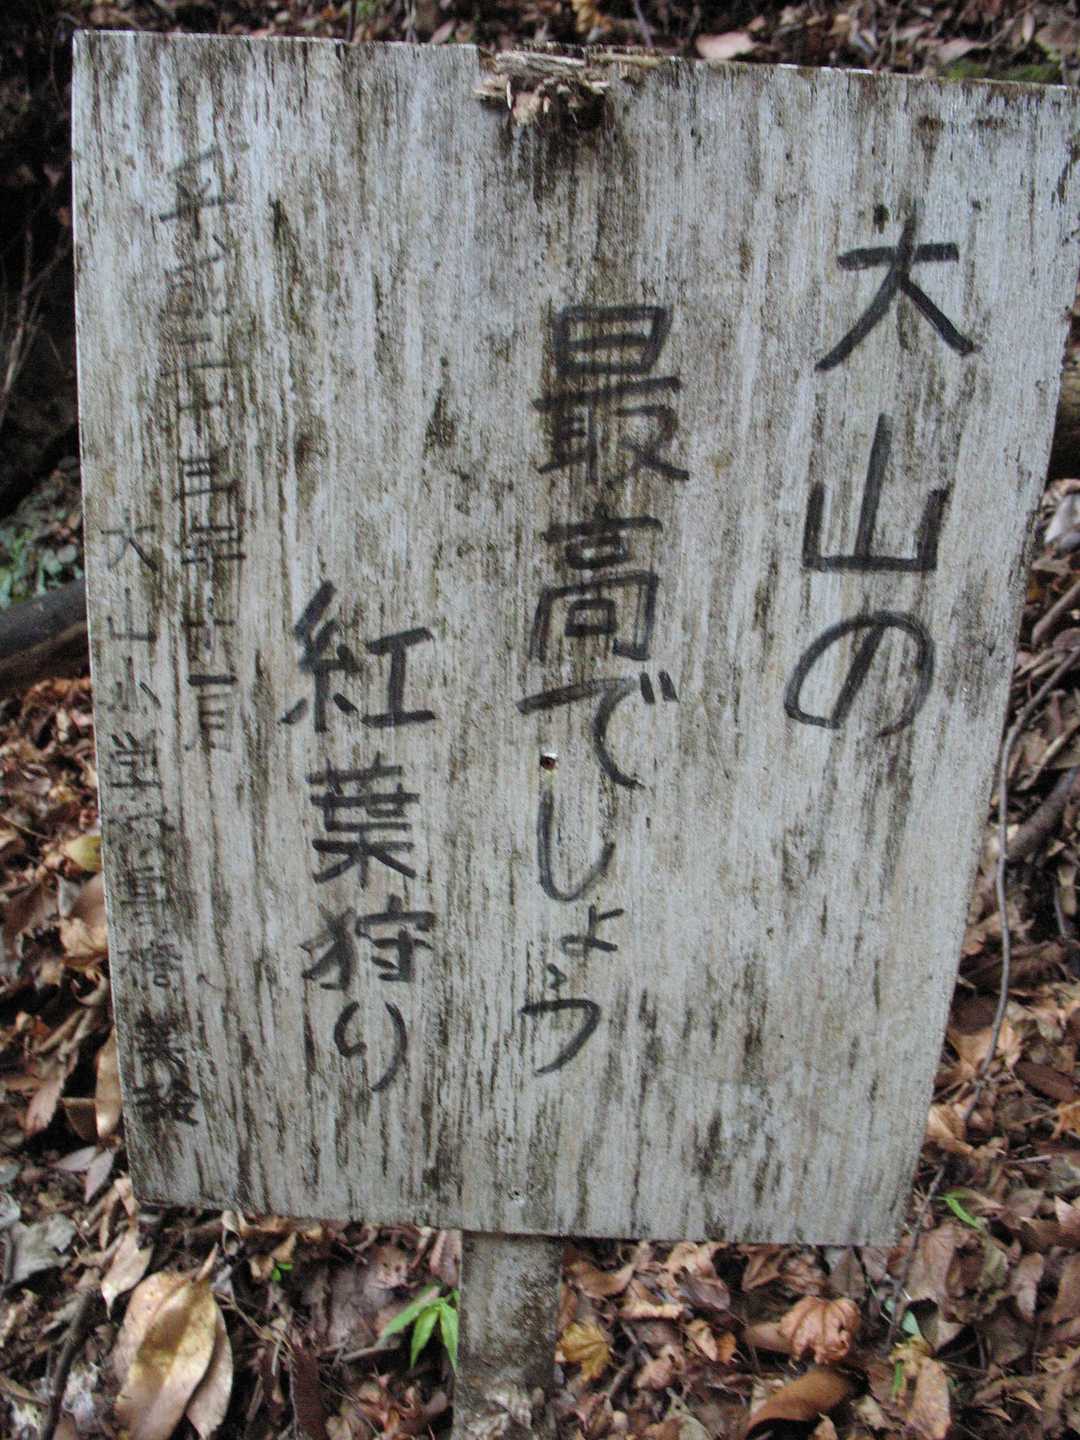 大山の
最高でしょう
紅葉狩り
平成二十四年十二月
大山小学